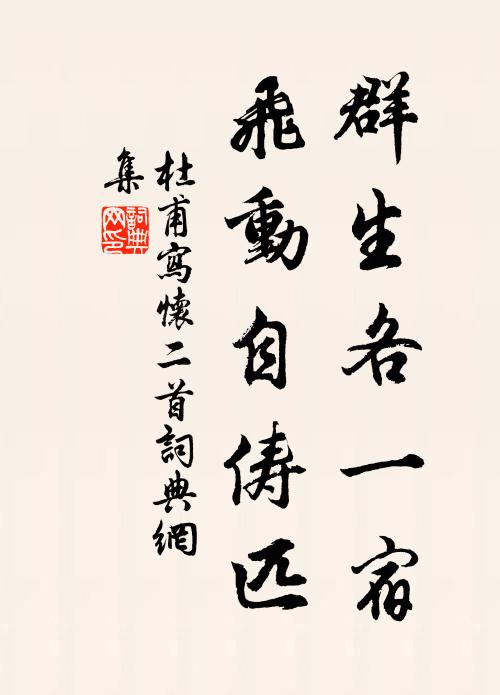 群生各一宿
飛動自儔匹
杜甫寫懷二首詞典網
集
詞典網印